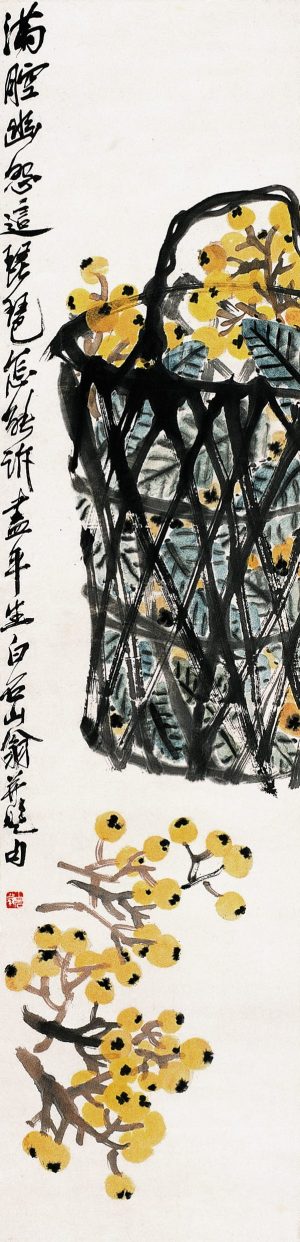 满腔幽怨這琵琶怎能訴盡平生白石山翁并题句